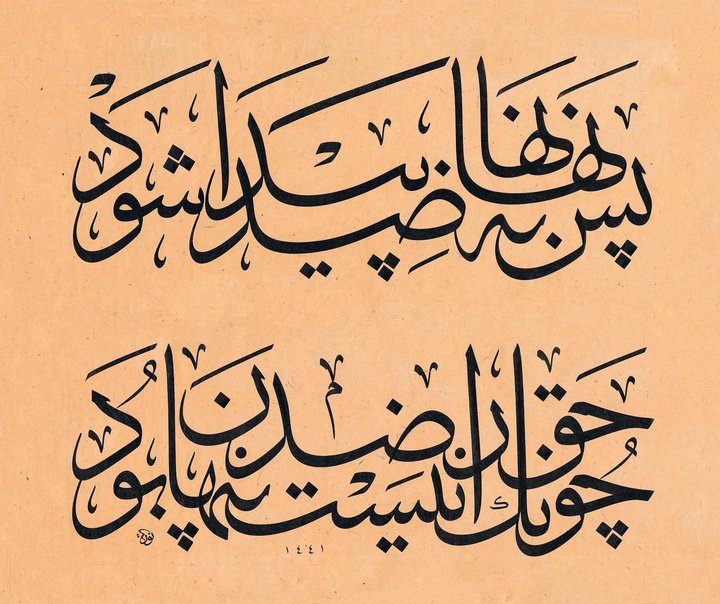 پس نهانیها به ضد پیدا شود
چونک حق را نیست ضد پنهان بود
١٤٤١